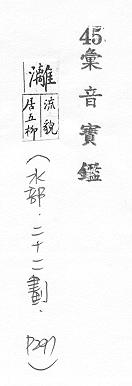 45.彙音寶鑑
灕
流貌
居五柳
（水部．二十二劃．P297）